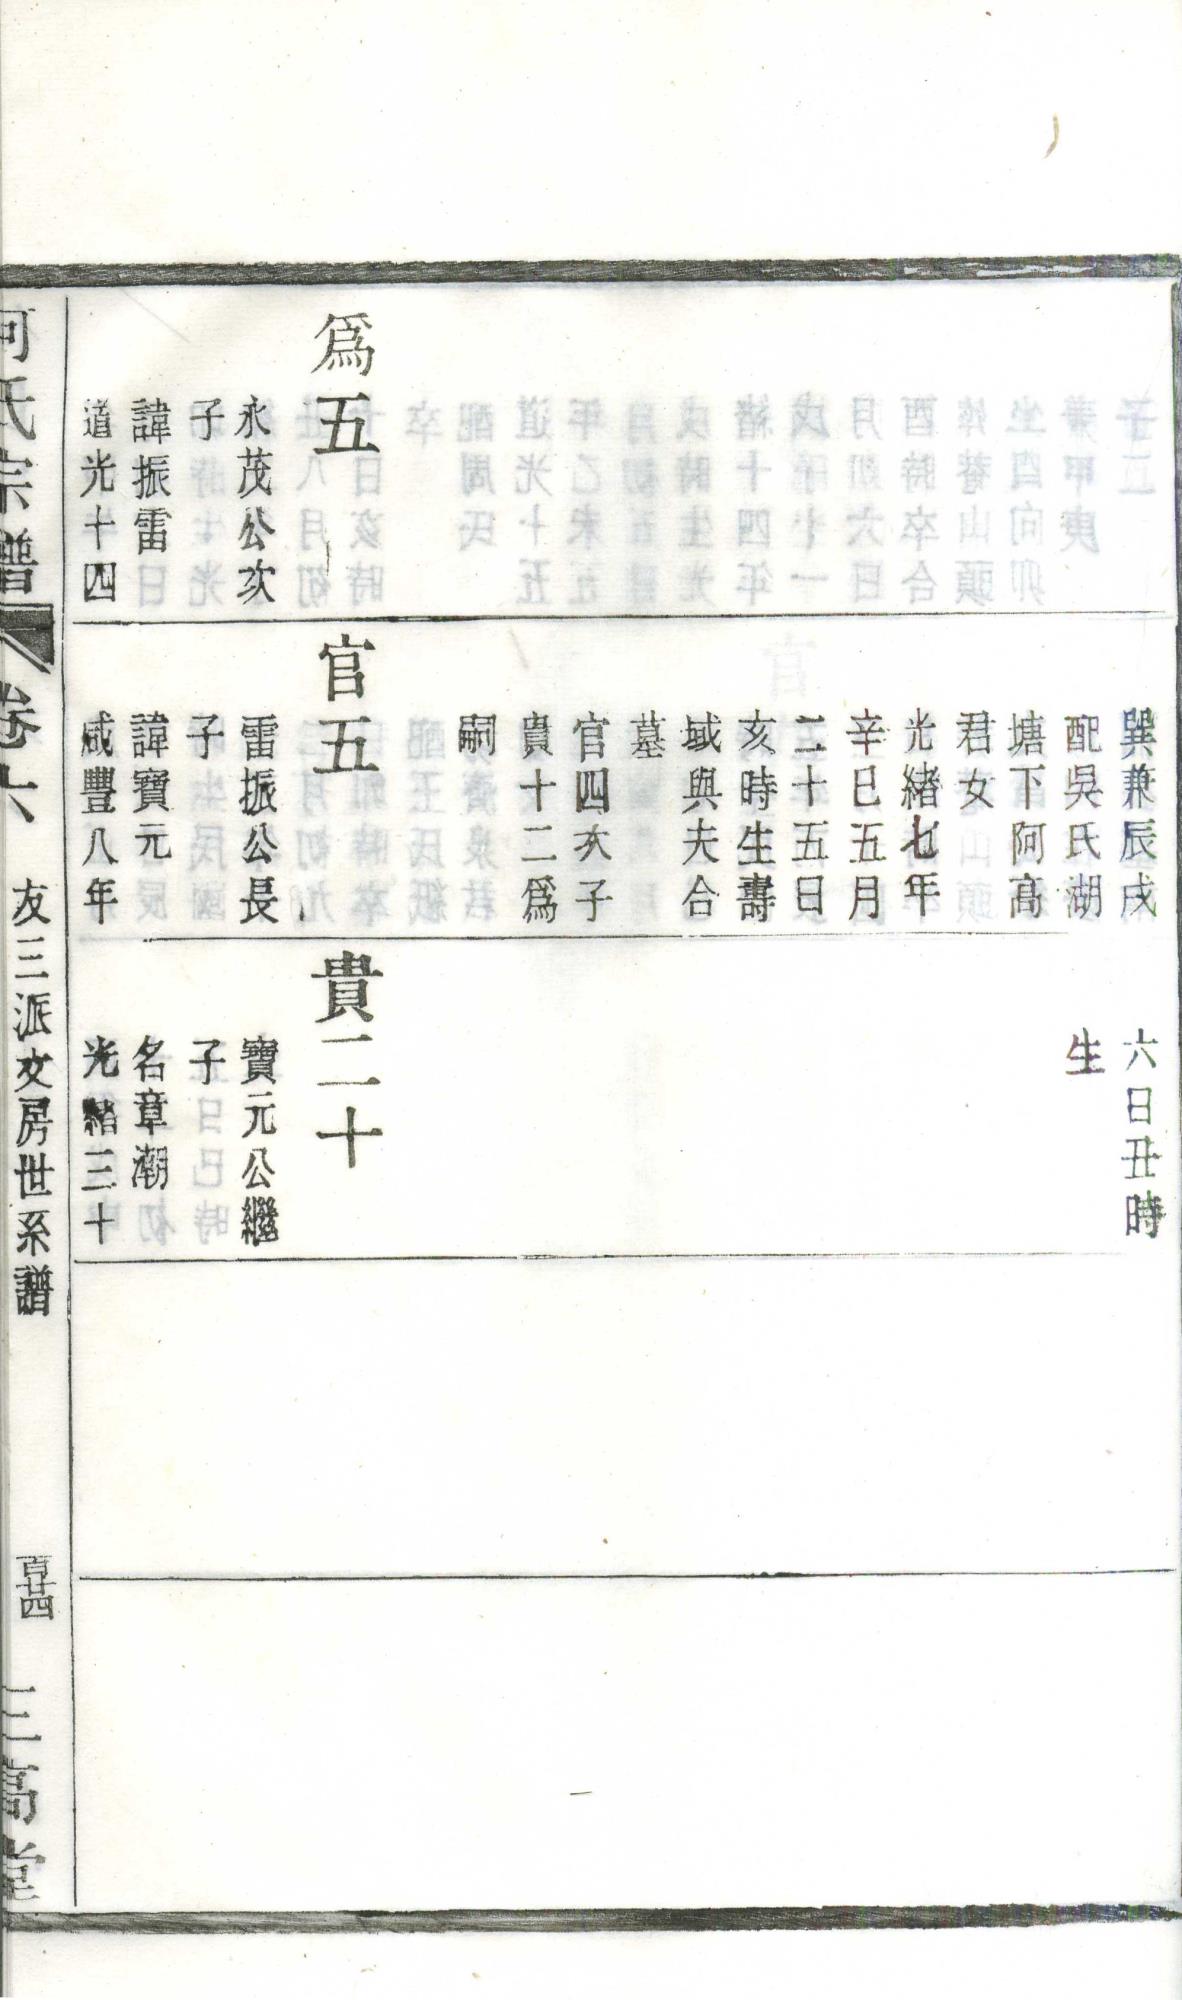 爲五
永茂公次
子
諱振雷
道光十四
巽兼辰戌
配吳氏湖
塘下阿高
君女
光緒七年
辛巳五月
二十五日
亥時生壽
域與夫合
墓
官四次子
貴十二爲
嗣
官五
雷振公長
子
諱寶元
咸豐八年
六日丑時
生
貴二十
寶元公繼
子
名章潮
光緒三十
何氏宗譜
卷六
友三派文房世系譜
百廿四
三高堂